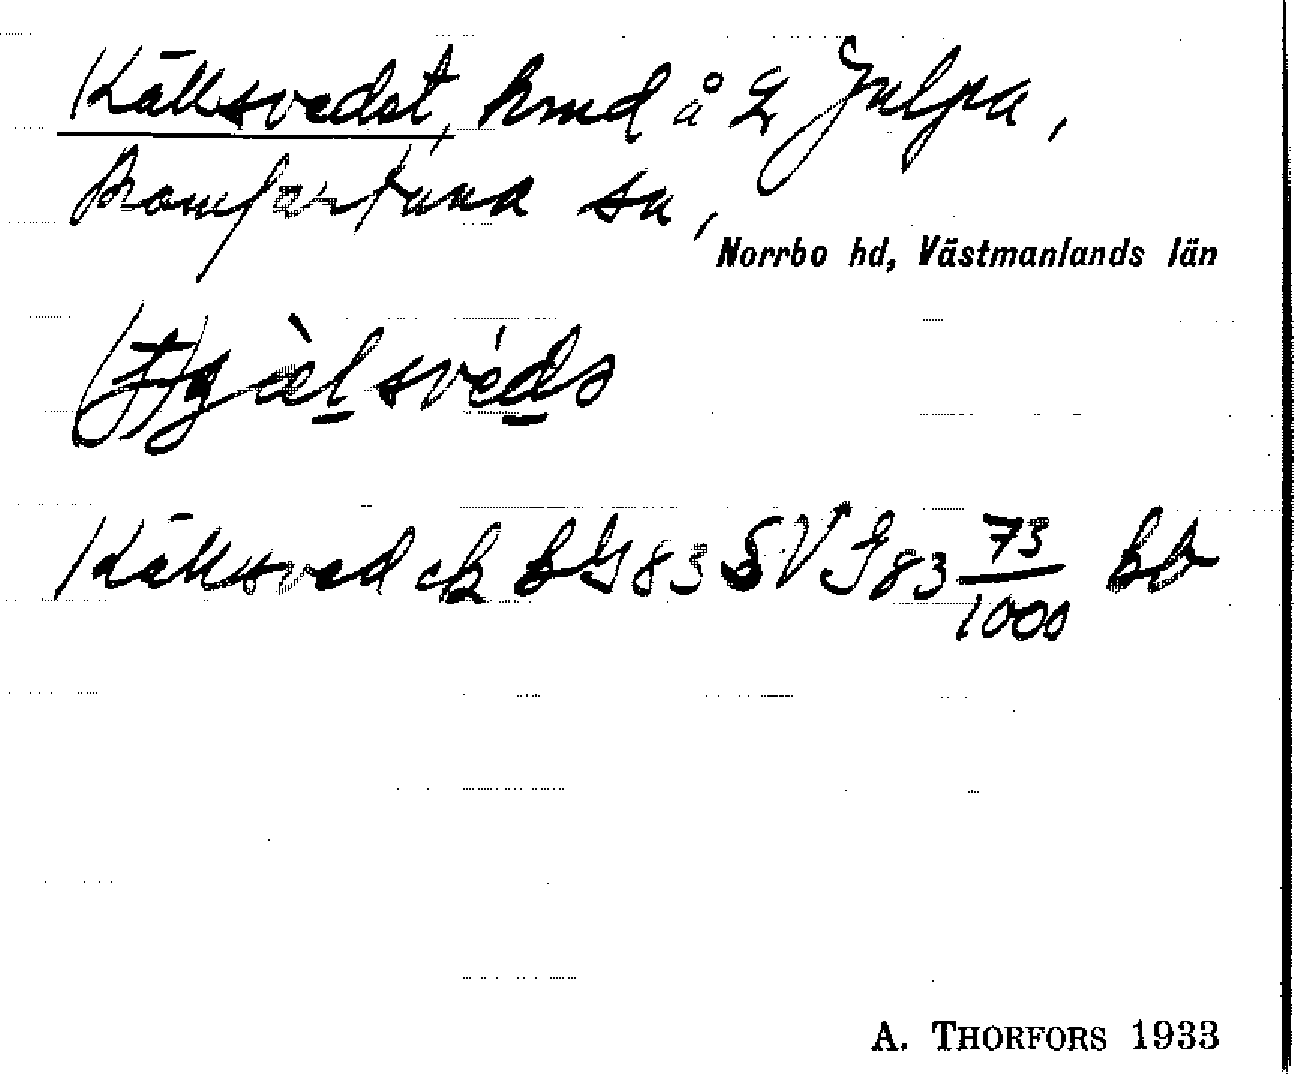 Källsvedet, hmd å L Julpa,
Romfartuna sn,
Norrbo hd, Västmanlands län
Källsved ck bG 83 SVJ 83 73/1000 bb
A. THORFORS 1933